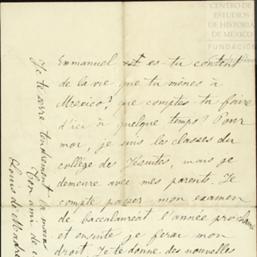 CENTRO DE
ESTUDIOS
DE HISTORIA
DE MEXICO
FUNDACIÓN
Emmanuel est es-tu content
de la vie que tu mènes à
Mexico? que comptes-tu faire
d'ici à quelque temps? Pour
moi, je suis les classes du
collège des Jésuites, mais je
demeure avec mes parents. Je
compte passer mon examen
de baccalauréat l'année prochaine
et ensuite je ferai mon
droit. Je te donne des nouvelles
Je te serre tendrement la main
Ton ami de
Louis de